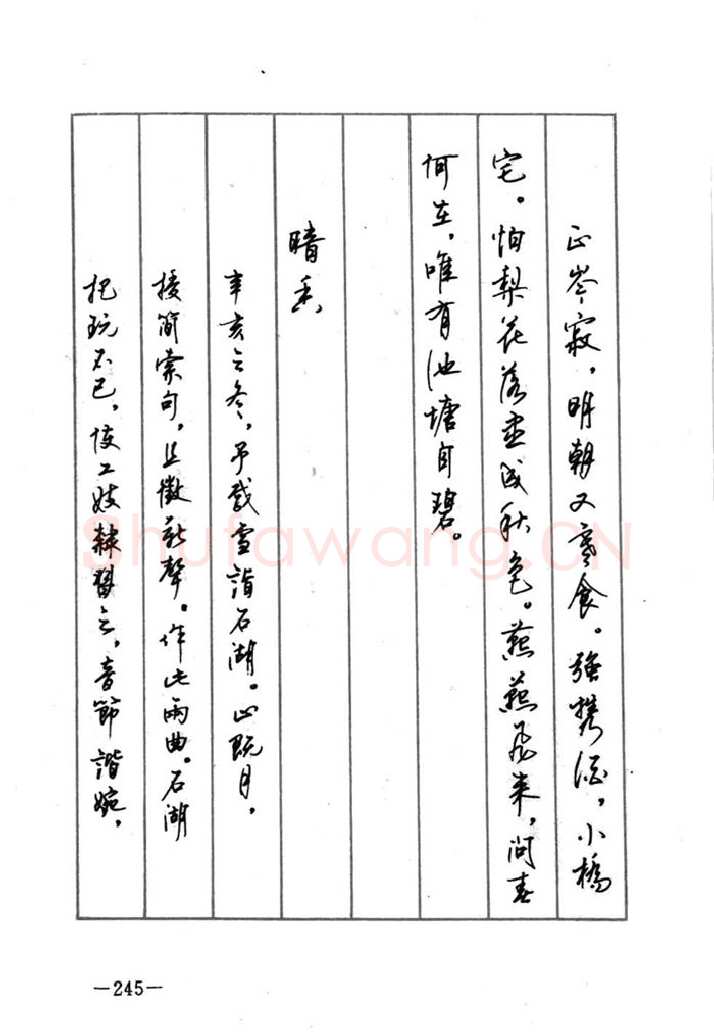 正岑寂，明朝又寒食。强携酒，小橋
宅。怕梨花落盡成秋色。燕燕飛来，问春
何在，唯有池塘自碧。
暗香
辛亥之冬，予載雪詣石湖。止既月，
授简索句，且徵新聲。作此兩曲。石湖
把玩不已，使工妓隸習之，音節諧婉，
—245—
Shufawang.CN